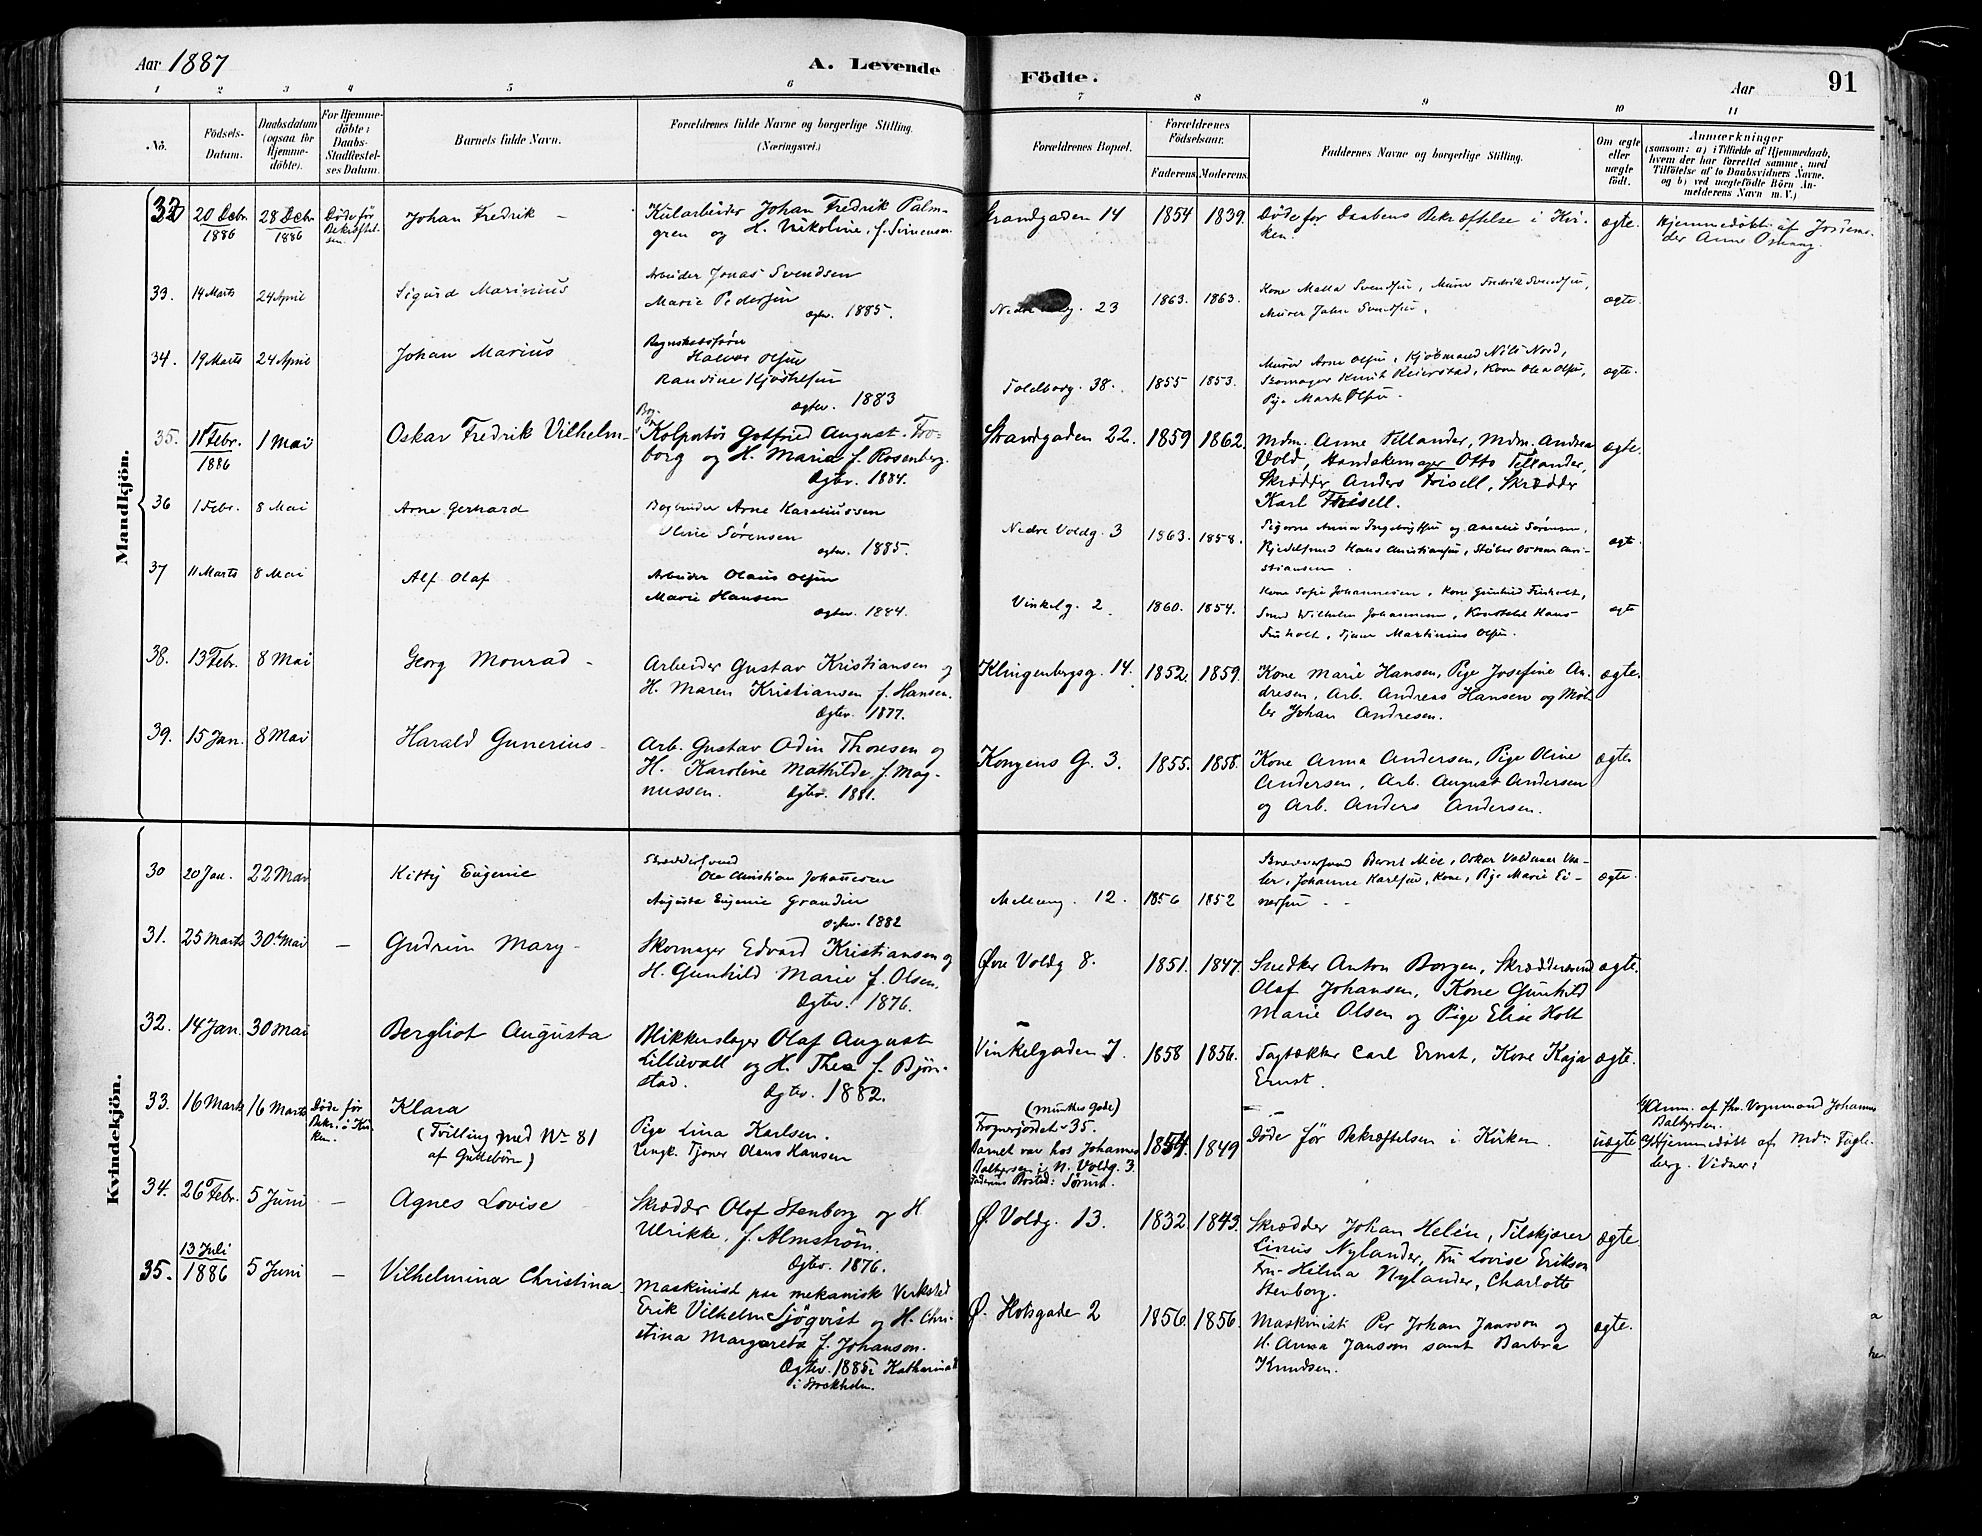 Aar 1887
A. Levende
Födte.
Aar
91
1 2 3 4 5 6 7 8 9 10 11
No.
Födsels-
Datum.
Daabsdatum
(ogsaa för
Hjemme-
döbte).
For Hjemme-
döbte:
Daabs-
Stadfæstel-
ses Datum.
Barnets fulde Navn.
Forældrenes fulde Navne og borgerlige Stilling.
(Næringsvei.)
Forældrenes Bopæl.
Forældrenes
Födselsaar.
Faderens. Moderens.
Faddernes Navne og borgerlige Stilling.
Om ægte
eller
uægte
födt.
Anmærkninger
(saasom: a) i Tilfælde af Hjemmedaab,
hvem der har forrettet samme, med
Tilföielse af to Daabsvidners Navne,
og b) ved uægtefödte Börn An-
melderens Navn m. V.)
Mandkjön.
32 20 Dcbr 1886
28 Dcbr 1886
Døde før
Bekræftel-
sen.
Johan Fredrik –
Kularbeider Johan Fredrik Palm-
gren og H. Nikoline, f. Simensen
Strandgaden 14 1854 1839.
Døde før Daabens Bekræftelse i Kir-
ken.
ægte.
Hjemmedøbt af Jordemo-
der Anne
33. 14 Marts 24 April
Sigurd Marinius
Arbeider Jonas Svendsen
Marie Pedersen
Ægtev. 1885.
Nedre Voldg. 23 1863. 1863.
Kone Malla Svendsen, Murer Fredrik Svendsen,
Murer John Svendsen.
ægte
34. 19 Marts 24 April
Johan Marius
Regnskabsfører
Halvor Olsen
Randine Kjøstelsen
Ægtev. 1883
Toldbodg. 38. 1855 1853.
Murer Arne Olsen, Kjøbmand Nils Nord,
Skomager Knut Reierstad, Kone Olea Olsen,
Pige Marte Olsen.
ægte.
35. 11 Febr. 1886
1 Mai
Oskar Fredrik Vilhelm –
Kolportør Gotfried August Fro-
borg og H. Maria f. Rosenberg.
Ægtev. 1884.
Strandgaden 22. 1859 1862.
Mdm. Anne Tellander, Mdm. Andrea
Vold, Handskemager Otto Tellander,
Skrædder Anders Frisell, Skrædder
Karl Frisell.
ægte.
36 1 Febr. 8 Mai
Arne Gerhard
Bogbinder Arne Kareliussen
Oline Sørensen
Ægtev. 1885.
Nedre Voldg. 3 1863. 1858.
Pigerne Anna Ingebrigtsen og Amalie Sørensen,
Hans Christiansen, Støber Oskar Kri-
stiansen.
ægte
37 11 Marts 8 Mai
Alf Olaf
Arbeider Olaus Olsen
Marie Hansen
Ægtev. 1884.
Vinkelg. 2 1860. 1854.
Kone Sofie Johannesen, Kone Gunhild Finholt,
Smed Wilhelm Johannesen, Konstabel Hans
Finholt, Tjener Martinius Olsen.
ægte
38. 13 Febr. 8 Mai
Georg Monrad –
Arbeider Gustav Kristiansen og
H. Maren Kristiansen f. Hansen.
Ægtev. 1877.
Klingenbergsg. 14. 1852. 1859.
Kone Marie Hansen, Pige Josefine An-
dresen, Arb. Andreas Hansen og Møl-
ler Johan Andresen.
ægte.
39. 15 Jan. 8 Mai
Harald Gunerius –
Arb. Gustav Odin Thoresen og
H. Karoline Mathilde, f. Mag-
nussen. Ægtev. 1881.
Kongens G. 3. 1855. 1858.
Kone Anna Andersen, Pige Oline
Andersen, Arb. August Andersen
og Arb. Anders Andersen.
ægte
Kvindekjön.
30 20 Jan. 22 Mai
Kitty Eugenie
Skræddersvend
Ole Christian Johannesen
Augusta Eugenie Grandin
Ægtev. 1882
Mellemg. 12. 1856 1852
Bernt Moe, Oskar Valdemar
Johanne Karlsen, Kone, Pige Marie Ei-
narsen
ægte.
31. 25 Marts 30 Mai –
Gudrun Mary –
Skomager Edvard Kristiansen og
H. Gunhild Marie f. Olsen.
Ægtev. 1876.
Øvre Voldg 8. 1851. 1847.
Snedker Anton Borgen, Skræddersvend
Olaf Johansen, Kone Gunhild
Marie Olsen og Pige Elise Holt
ægte.
32. 14 Jan. 30 Mai
Bergliot Augusta
Blikkenslager Olaf August
Lillievall og H. Thea f. Bjørn-
stad. Ægtev. 1882.
Vinkelgaden 7. 1858 1856.
Tagtækker Carl Ernst, Kone Kaja
Ernst.
ægte.
33. 16 Marts 16 Marts
Døde før
Bekr. i Kir-
ken.
Klara
(Tvilling med No 81
af Guttebørn)
Pige Lina Karlsen.
Ungk. Tjener Olaus Hansen
(Munthes Gade)
Frognerjordet 35.
Barnet var hos Johannes
Dalbyesen i N. Voldg. 3
Faderens Bosted: Sørum.
1854. 1849
Døde før Bekræftelsen i Kirken.
uægte
Anm. af Fhv. Vognmand Johannes
Dalbyesen.
Hjemmedøbt af Mdm Fugle-
berg. Vidner:
34. 26 Febr. 5 Juni –
Agnes Lovise
Skrædder Olof Stenborg og H
Ulrikke, f. Almstrøm.
Ægtev. 1876.
Ø. Voldg. 13. 1832 1843.
Skrædder Johan Helén, Tilskjærer
Linus Nylander, Fru Lovise Erikson
Fru Hilma Nylander, Charlotte
Stenborg.
ægte
35. 13 Juli 1886
5 Juni –
Vilhelmina Christina –
Maskinist paa mekanisk Verksted
Erik Vilhelm Sjöqvist og H. Chri-
stina Margareta f. Johanson.
Ægtev. 1885 i Katharina
i Stockholm.
Ø. Slotsgade 2 1856. 1856.
Maskinist Per Johan Janson og
H. Anna Janson samt Barbra
Knudsen.
ægte.